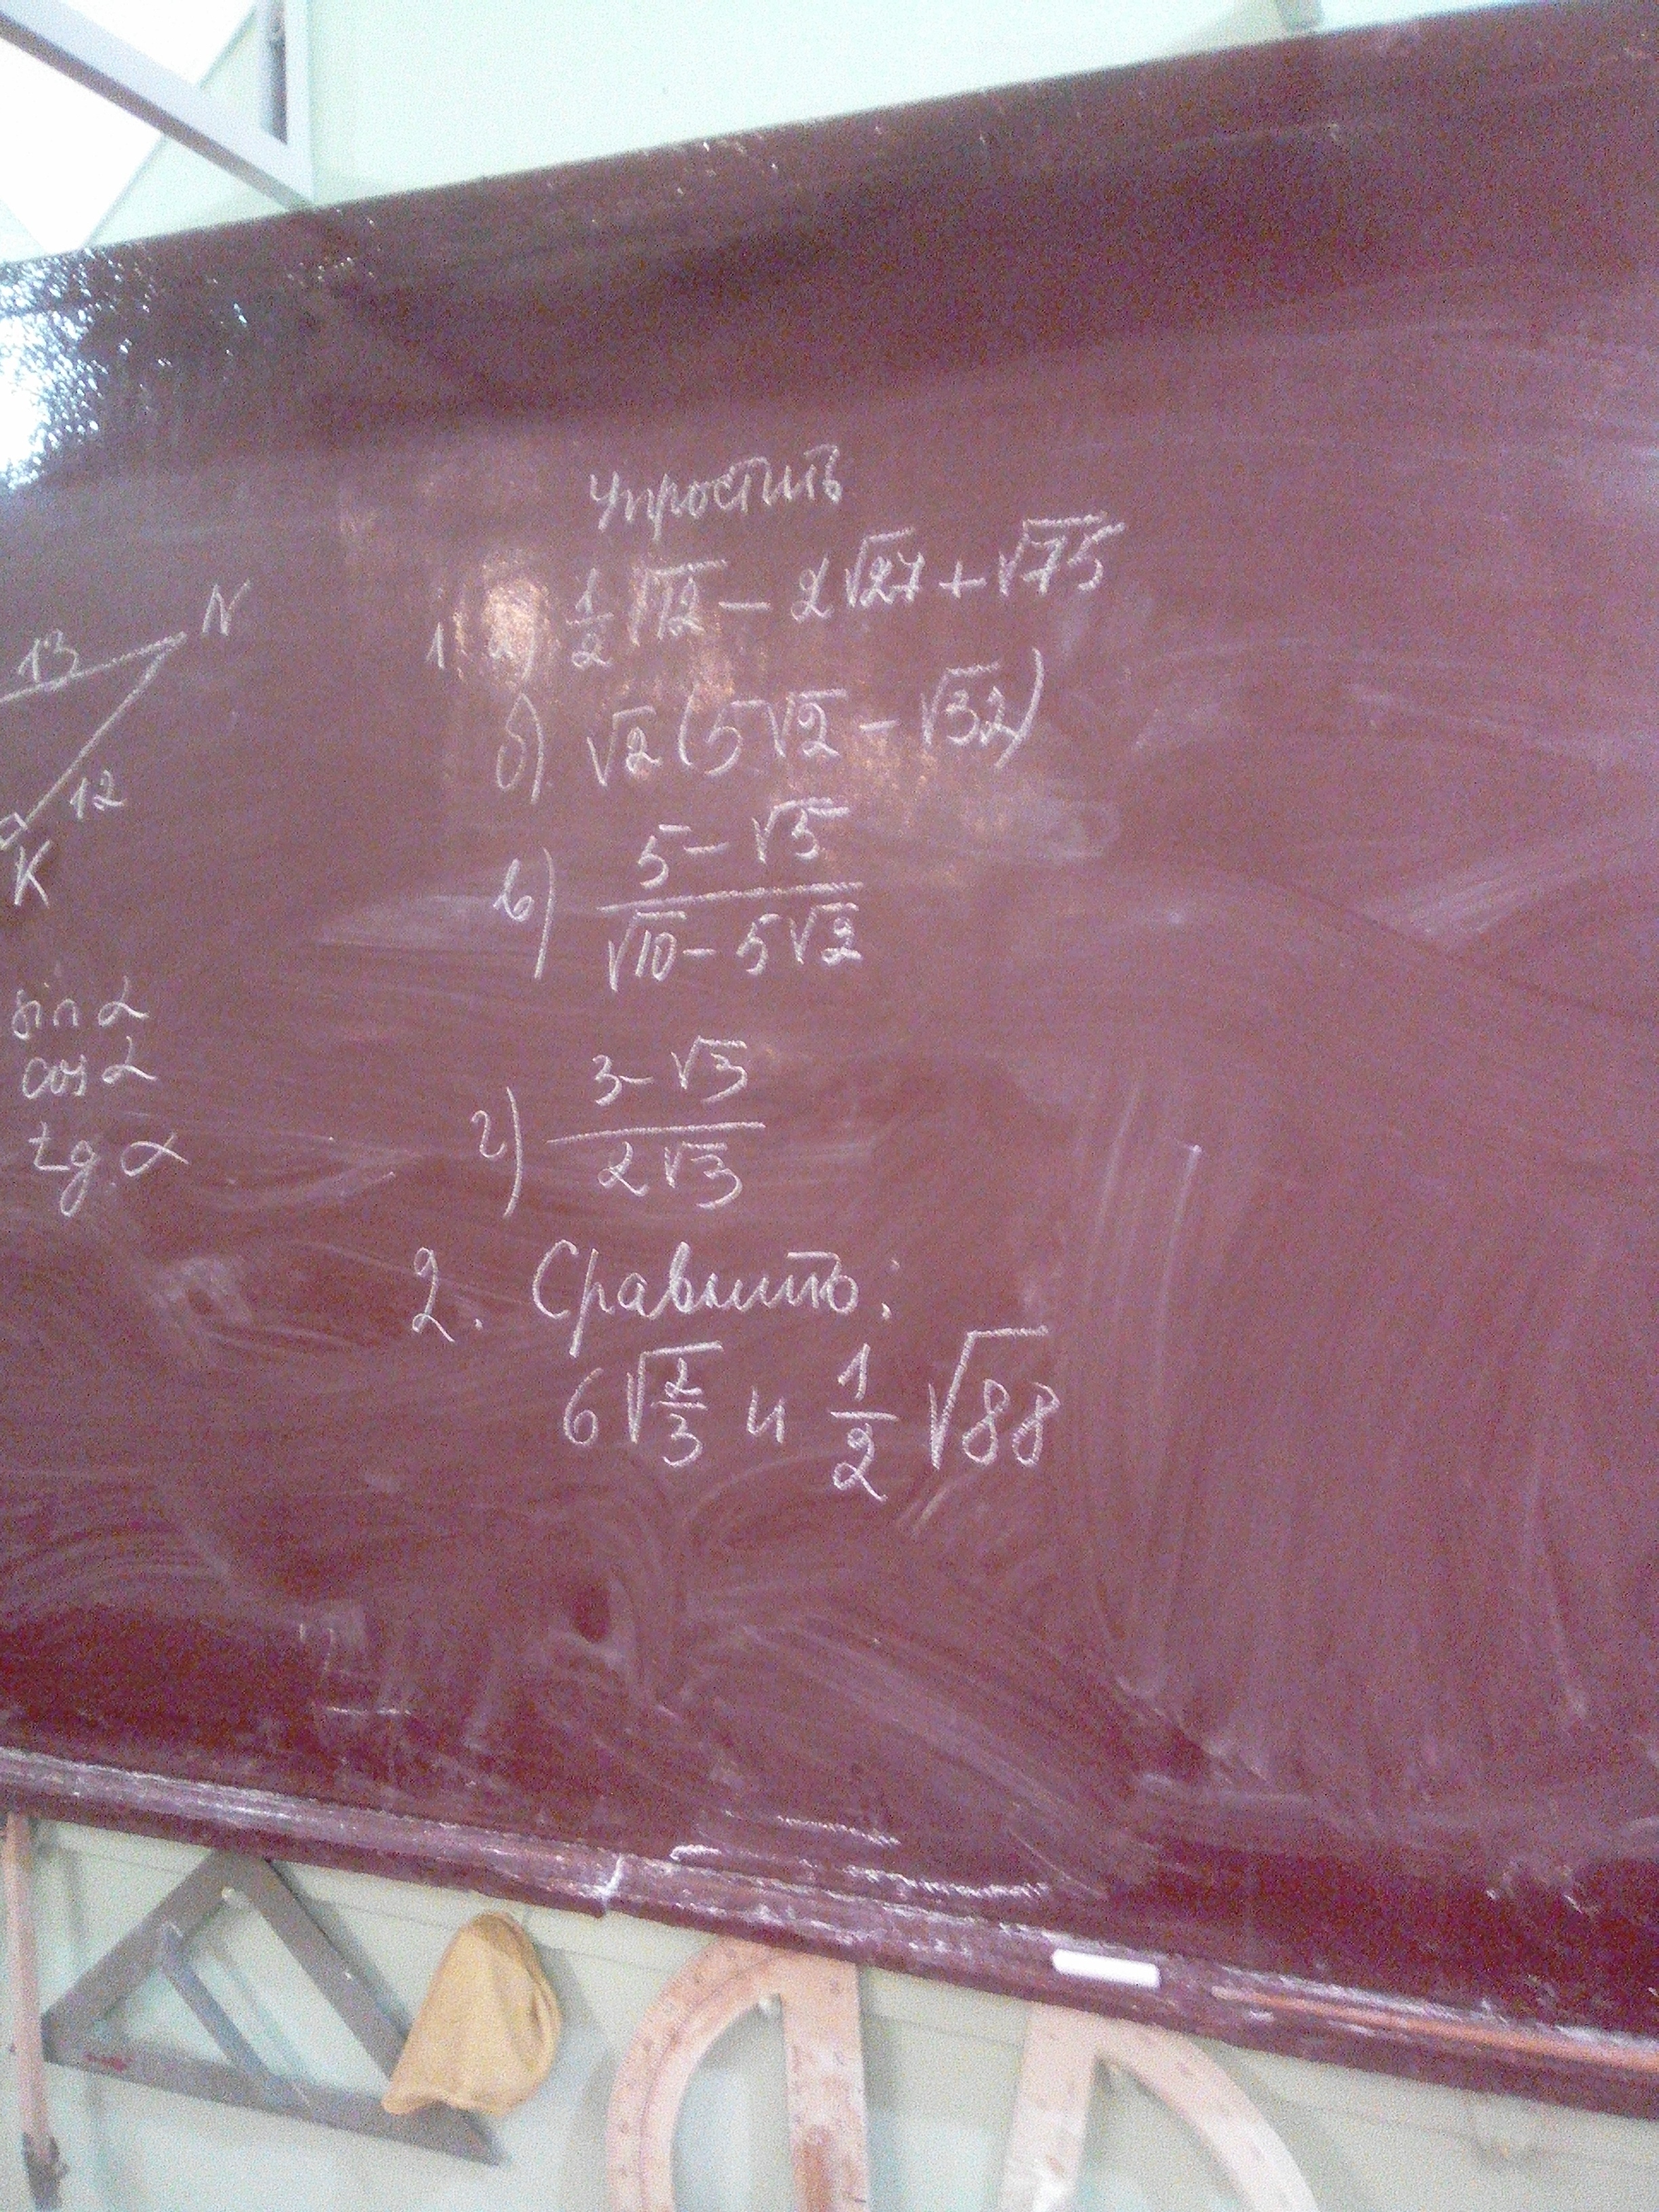 13 N
12
K
sin α
cos α
tg α
Упростить
1. а) 1/2 √12 − 2√27 + √75
б) √2 (5√2 − √32)
в) (5 − √5)/(√10 − 5√2)
г) (3 − √3)/(2√3)
2. Сравнить:
6√(2/3) и 1/2 √88